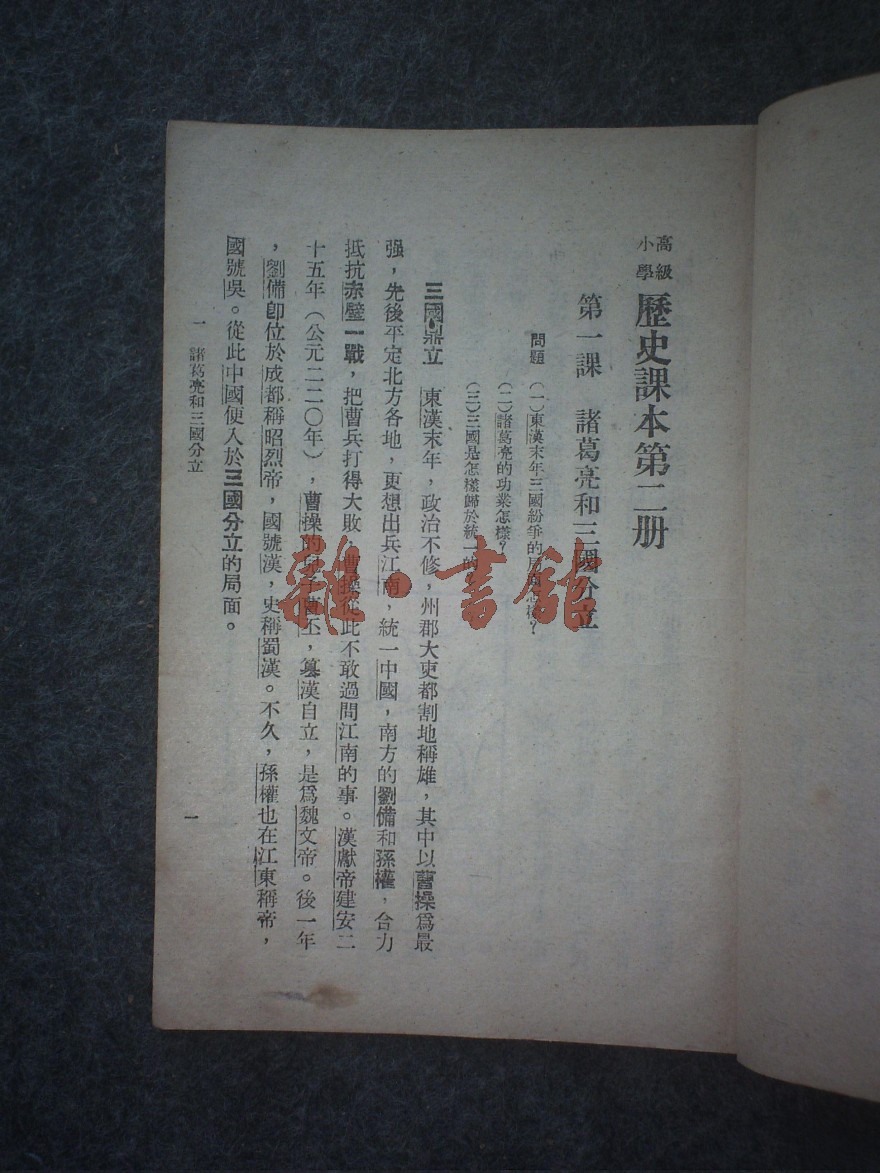 高級小學 歷史課本第二册
第一課 諸葛亮和三國分立
問題 (一)東漢末年三國紛爭的局面怎樣?
(二)諸葛亮的功業怎樣?
(三)三國是怎樣歸於統一的?
三國鼎立 東漢末年,政治不修,州郡大吏都割地稱雄,其中以曹操爲最
强,先後平定北方各地,更想出兵江南,統一中國,南方的劉備和孫權,合力
抵抗赤壁一戰,把曹兵打得大敗,曹操從此不敢過問江南的事。漢獻帝建安二
十五年(公元二二〇年),曹操的兒子曹丕,篡漢自立,是爲魏文帝。後一年
,劉備卽位於成都稱昭烈帝,國號漢,史稱蜀漢。不久,孫權也在江東稱帝,
國號吳。從此中國便入於三國分立的局面。
一 諸葛亮和三國分立
一
雜·書館